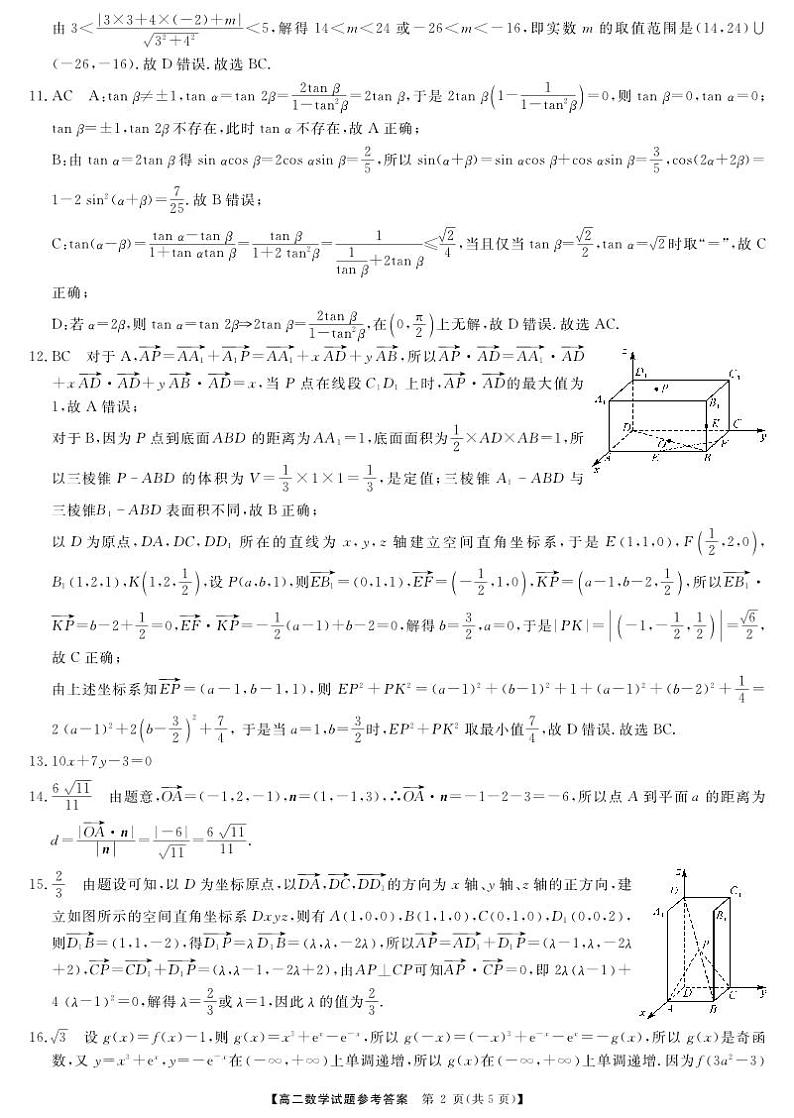 由 3<|3×3+4×(-2)+m|/√(3²+4²)<5,解得 14<m<24 或-26<m<-16,即实数 m 的取值范围是(14,24)∪
(-26,-16).故 D 错误.故选 BC.
11. AC A:tan β≠±1,tan α=tan 2β=2tan β/(1-tan²β)=2tan β,于是 2tan β(1-1/(1-tan²β))=0,则 tan β=0,tan α=0;
tan β=±1,tan 2β 不存在,此时 tan α 不存在,故 A 正确;
B:由 tan α=2tan β 得 sin αcos β=2cos αsin β=2/5,所以 sin(α+β)=sin αcos β+cos αsin β=3/5,cos(2α+2β)=
1-2 sin²(α+β)=7/25.故 B 错误;
C:tan(α-β)=(tan α-tan β)/(1+tan αtan β)=tan β/(1+2 tan²β)=1/(1/tan β+2tan β)≤√2/4,当且仅当 tan β=√2/2,tan α=√2时取“=”,故 C
正确;
D:若 α=2β,则 tan α=tan 2β⇒2tan β=2tan β/(1-tan²β),在(0,π/2)上无解,故 D 错误.故选 AC.
12. BC 对于 A,AP→=AA₁→+A₁P→=AA₁→+x AD→+y AB→,所以AP→·AD→=AA₁→·AD→
+x AD→·AD→+y AB→·AD→=x,当 P 点在线段 C₁D₁ 上时,AP→·AD→的最大值为
1,故 A 错误;
对于 B,因为 P 点到底面 ABD 的距离为 AA₁=1,底面面积为1/2×AD×AB=1,所
以三棱锥 P-ABD 的体积为 V=1/3×1×1=1/3,是定值;三棱锥 A₁-ABD 与
三棱锥B₁-ABD 表面积不同,故 B 正确;
以 D 为原点,DA,DC,DD₁ 所在的直线为 x,y,z 轴建立空间直角坐标系,于是 E(1,1,0),F(1/2,2,0),
B₁(1,2,1),K(1,2,1/2),设 P(a,b,1),则EB₁→=(0,1,1),EF→=(-1/2,1,0),KP→=(a-1,b-2,1/2),所以EB₁→·
KP→=b-2+1/2=0,EF→·KP→=-1/2(a-1)+b-2=0,解得 b=3/2,a=0,于是|PK|=|(-1,-1/2,1/2)|=√6/2,
故 C 正确;
由上述坐标系知EP→=(a-1,b-1,1),则 EP²+PK²=(a-1)²+(b-1)²+1+(a-1)²+(b-2)²+1/4=
2(a-1)²+2(b-3/2)²+7/4,于是当 a=1,b=3/2时,EP²+PK² 取最小值7/4,故 D 错误.故选 BC.
z
D₁
C₁
P
A₁
B₁
K
D
C
y
O
F
A
E
B
x
13. 10x+7y-3=0
14. 6√11/11 由题意,OA→=(-1,2,-1),n=(1,-1,3),∴OA→·n=-1-2-3=-6,所以点 A 到平面 a 的距离为
d=|OA→·n|/|n|=|-6|/√11=6√11/11.
15. 2/3 由题设可知,以 D 为坐标原点,以DA→,DC→,DD₁→的方向为 x 轴、y 轴、z 轴的正方向,建
立如图所示的空间直角坐标系 Dxyz,则有 A(1,0,0),B(1,1,0),C(0,1,0),D₁(0,0,2),
则D₁B→=(1,1,-2),得D₁P→=λ D₁B→=(λ,λ,-2λ),所以AP→=AD₁→+D₁P→=(λ-1,λ,-2λ
+2),CP→=CD₁→+D₁P→=(λ,λ-1,-2λ+2),由AP⊥CP可知AP→·CP→=0,即 2λ(λ-1)+
4(λ-1)²=0,解得 λ=2/3或 λ=1,因此 λ 的值为2/3.
z
D
C₁
A₁
B₁
P
D
C
y
A
B
x
16. √3 设 g(x)=f(x)-1,则 g(x)=x³+eˣ-e⁻ˣ,所以 g(-x)=(-x)³+e⁻ˣ-eˣ=-g(x),所以 g(x)是奇函
数,又 y=x³+eˣ,y=-e⁻ˣ在(-∞,+∞)上单调递增,所以 g(x)在(-∞,+∞)上单调递增.因为 f(3a²-3)
【高二数学试题参考答案 第 2 页(共 5 页)】